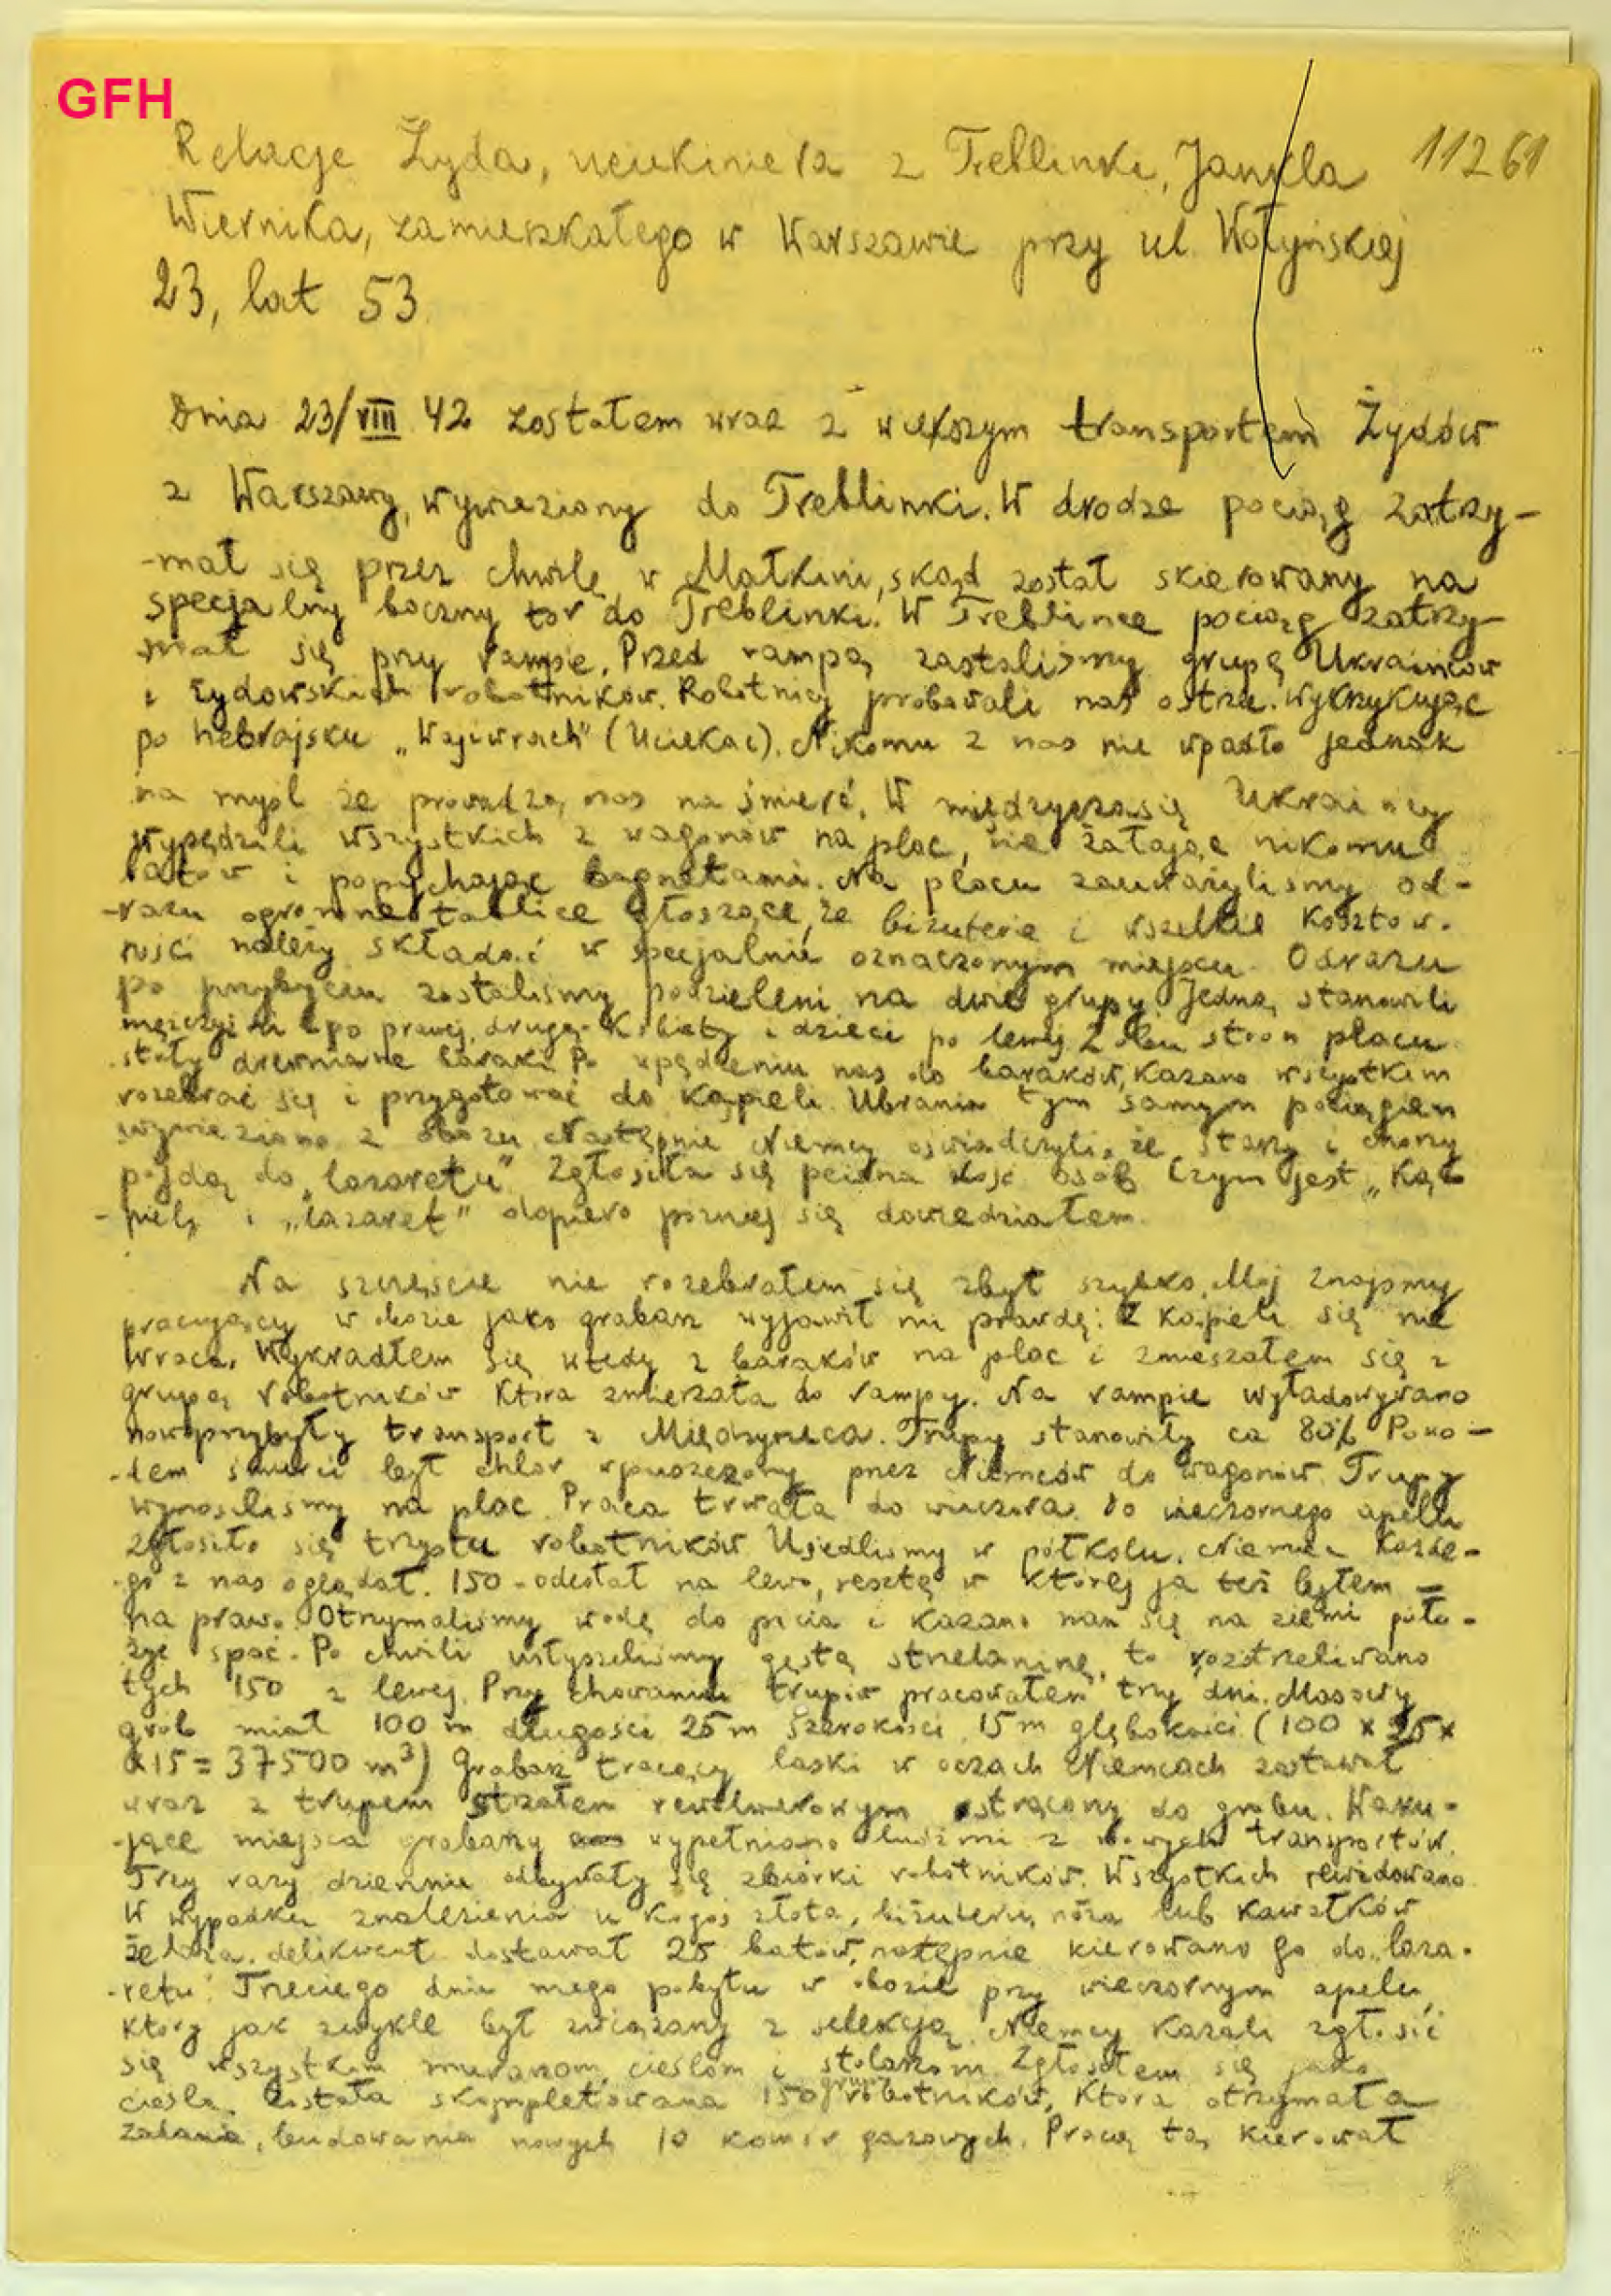 GFH
11261
Relacje Żyda, uciekiniera z Treblinki, Jankla
Wiernika, zamieszkałego w Warszawie przy ul. Wołyńskiej
23, lat 53.
Dnia 23/VIII 42 zostałem wraz z większym transportem Żydów
z Warszawy, wywieziony do Treblinki. W drodze pociąg zatrzy-
-mał się przez chwilę w Małkini, skąd został skierowany na
specjalny boczny tor do Treblinki. W Treblince pociąg zatrzy-
mał się przy rampie. Przed rampą zastaliśmy grupę Ukraińców
i żydowskich robotników. Robotnicy probowali nas ostrze. wykrzykując
po hebrajsku „Wajiwrach" (Uciekać). Nikomu z nas nie wpadło jednak
na myśl że prowadzą nas na śmierć. W międzyczasię Ukraincy
wypędzili wszystkich z wagonów na plac, nie żałając nikomu
batów i popychając bagnetami. Na placu zauważyliśmy od-
-razu ogromne tablice głoszące, że biżuterie i wszelkie kosztow-
ności należy składać w specjalnie oznaczonym miejscu. Odrazu
po przybyciu zostaliśmy podzieleni na dwie grupy. Jedną stanowili
mężczyźni po prawej, drugą - Kobiety i dzieci po lewej. Z obu stron placu
stały drewniane baraki. Po wpędzeniu nas do baraków, Kazano wszystkim
rozebrać się i przygotować do kąpieli. Ubrania tym samym pociągiem
wywieziono z obozu. Następnie Niemcy oświadczyli, że starzy i chorzy
pójdą do „lazaretu" Zgłosiła się pewna ilość osób. Czym jest „Ką-
-piel„ i „lazaret" dopiero pozniej się dowiedziałem.
Na szczęście nie rozebrałem się zbyt szybko. Mój znajomy
pracujący w obozie jako grabarz wyjawił mi prawdę: Z Kąpieli się nie
wraca. Wykradłem się wtedy z baraków na plac i zmieszałem się z
grupą robotników ktora zmierzała do rampy. Na rampie wyładowywano
nowoprzybyły transport z Międzyrzeca. Trupy stanowiły ca 80% Powo-
-dem śmierci był chlor wpuszczony przez Niemców do wagonów. Trupy
wynosiliśmy na plac. Praca trwała do wieczora. Do wieczornego apelu
zgłosiło się trzystu robotników. Usiedliśmy w półkolu. Niemiec każde-
-go z nas oglądał. 150 - odesłał na lewo, resztę w której ja też byłem -
na prawo. Otrzymaliśmy wodę do picia i kazano nam się na ziemi poło-
żyć spać. Po chwili usłyszeliśmy gęstą strzelaninę, to rozstrzeliwano
tych 150 z lewej. Przy chowaniu trupów pracowałem trzy dni. Masowy
grób miał 100 m długości 25 m szerokości 15 m głębokości (100 x 25 x
x 15 = 37500 m³) Grabarz tracący łaski w oczach Niemcach zostawał
wraz z trupem strzałem rewolwerowym strącony do grobu. Waku-
-jące miejsca grabarzy wypełniano ludźmi z nowych transportów.
Trzy razy dziennie odbywały się zbiórki robotników. Wszystkich rewidowano.
W wypadku znalezienia u kogoś złota, biżuterii, noża lub kawałków
żelaza, delikwent dostawał 25 batów, nastepnie kierowano go do „laza-
-retu". Trzeciego dnia mego pobytu w obozie przy wieczornym apelu,
ktory jak zwykle był związany z selekcją Niemcy kazali zgłosić
się wszystkim murarzom, cieślom i stolarzom. Zgłosiłem się jako
cieśla. Została skompletowana 150 grupa robotników, ktora otrzymała
zadanie, budowania nowych 10 komór gazowych. Pracą tą kierował